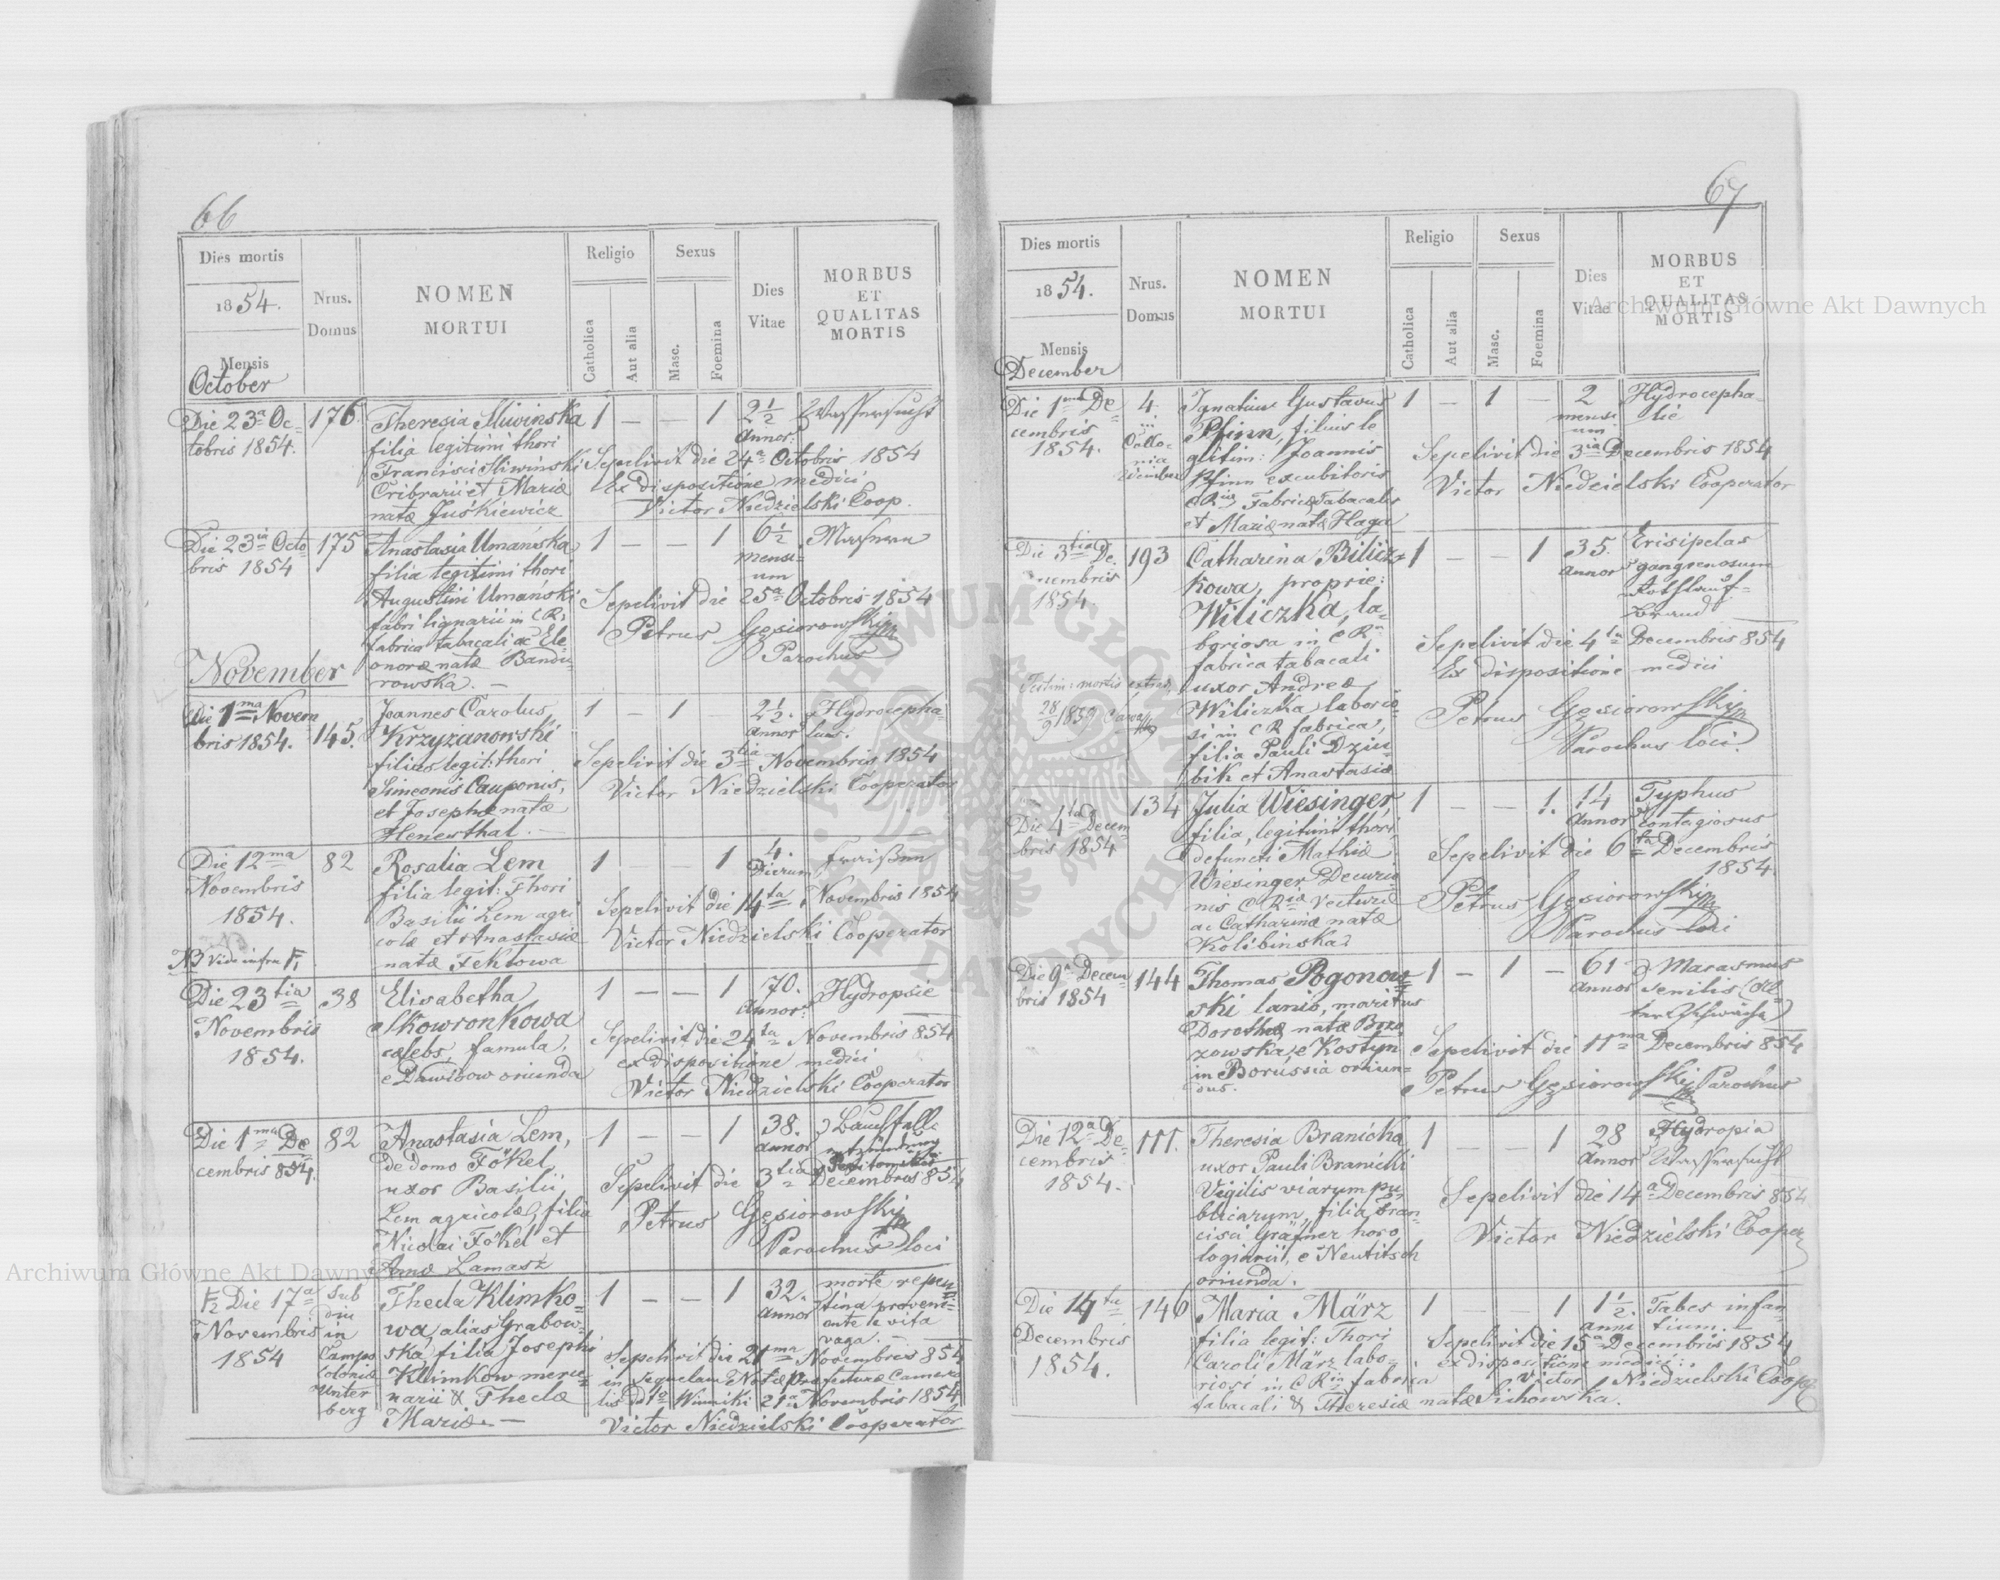 66
Dies mortis
1854.
Mensis
October
Nrus.
Domus
NOMEN
MORTUI
Religio
Catholica
Aut alia
Sexus
Masc.
Foemina
Dies
Vitae
MORBUS
ET
QUALITAS
MORTIS
Die 23a Oc-
tobris 1854.
176.
Theresia Sliwinska
filia legitimi thori
Francisci Sliwiński
Cribrarii et Mariæ
natæ Juśkiewicz
1 — — 1
2 1/2
Annor:
Wassersucht
Sepelivit die 24a Octobris 1854
Ex dispositione medici
Victor Niedzielski Coop.
Die 23ia Octo-
bris 1854
175
Anastasia Umańska
filia legitimi thori
Augustini Umański
fabri lignarii in C R.
fabrica tabacali ac Ele-
onoræ natæ Bandu-
rowska. —
1 — — 1
6 1/2
mensi-
um
Masern
Sepelivit die 25a Octobris 1854
Petrus Gęsiorowski
Parochus
November
Die 1ma Novem
bris 1854.
145.
Joannes Carolus
Krzyzanowski
filius legit: thori
Simeonis Cauponis,
et Josephæ natæ
Henersthal. —
1 — 1 —
2 1/2.
Annor
Hydrocepha-
lus.
Sepelivit die 3tia Novembris 1854
Victor Niedzielski Cooperator
Die 12ma
Novembris
1854.
NB Vide infra F1
82
Rosalia Lem
filia legit: Thori
Basilii Lem agri
colæ et Anastasiæ
natæ Fektowa
1 — — 1
4.
Dierum
Fraißen
Sepelivit die 14ta Novembris 1854
Victor Niedzielski Cooperator
Die 23tia
Novembris
1854.
38
Elisabetha
Skowronkowa
cælebs, famula,
e Dawidow oriunda
1 — — 1
70.
Annor:
Hydropsie
Sepelivit die 24ta Novembris 854
ex dispositione medici
Victor Niedzielski Cooperator
Die 1ma De
cembris 854.
82
Anastasia Lem,
de domo Fökel
uxor Basilii
Lem agricolæ, filia
Nicolai Fökel et
Annæ Lamasz
1 — — 1
38.
Annor
Bauchfell
entzündung
Sepelivit die 3tia Decembris 854
Petrus Gęsiorowski
Parochus loci
F2 Die 17a
Novembris
1854
sub
diu
in
Campo
Coloniæ
Unter
berg
Thecla Klimko-
wa, alias Grabow-
ska, filia Josephi
Klimkow merce-
narii & Theclæ
Mariæ. —
1 — — 1
32.
Annor
morte repen-
tina proveni-
ente e vita
vaga. —
Sepelivit die 21ma Novembris 854
in sequelam Notæ Præfecturæ Camera
lis dto Winniki 21a Novembris 1854
Victor Niedzielski Cooperator
67
Dies mortis
1854.
Mensis
December
Nrus.
Domus
NOMEN
MORTUI
Religio
Catholica
Aut alia
Sexus
Masc.
Foemina
Dies
Vitae
MORBUS
ET
QUALITAS
MORTIS
Die 1ma De
cembris
1854.
4.
Collo-
nia
Ignatius Gustavus
Pfinn, filius le
gitim: Joannis
Pfinn excubitoris
C Riæ Fabricæ Tabacalis
et Mariæ natæ Haga
1 — 1 —
2
mensi
um
Hydrocepha-
lie
Sepelivit die 3ia Decembris 1854
Victor Niedzielski Cooperator
Die 3tia De-
cembris
1854
Testim: mortis extrad.
28/9 1859
193
Catharina Bilicz-
kowa, proprie:
Wiliczka, la-
boriosa in C Ra
fabrica tabacali
uxor Andreæ
Wiliczka laborio
si in C R fabrica,
filia Pauli Dziu-
bik et Anastasiæ
1 — — 1
35.
Annor
Erisipelas
gangrenosum
Rothlauf-
brand
Sepelivit die 4ta Decembris 854
Ex dispositione medici
Petrus Gęsiorowski
Parochus loci.
Die 4ta Decem
bris 1854
134
Julia Wiesinger,
filia, legitimi thori
defuncti Mathiæ
Wiesinger Decurio
nis C Riæ Vecturæ
ac Catharinæ natæ
Kolibinska
1 — — 1.
14
Annor
Typhus
contagiosus
Sepelivit die 6ta Decembris
1854
Petrus Gęsiorowski
Parochus loci
Die 9a Decem
bris 1854
144
Thomas Pogonow-
ski lanio, maritus
Dorotheæ natæ Brzo
zowska, e Kostyn
in Borussia oriun-
dus.
1 — 1 —
61
Annor
Marasmus
senilis (Al-
tersschwäche)
Sepelivit die 11ma Decembris 854
Petrus Gęsiorowski Parochus
Die 12a De-
cembris
1854.
111.
Theresia Branicka
uxor Pauli Branicki
Vigilis viarum pu-
blicarum, filia Fran-
cisci Gräfner horo
logiarii, e Neutitsch
oriunda.
1 — 1
28
Annor
Hydropia
Wassersucht
Sepelivit die 14a Decembris 854
Victor Niedzielski Cooper
Die 14ta
Decembris
1854.
146
Maria März
filia legit: Thori
Caroli März labo-
riosi in C Ria fabrica
tabacali & Theresiæ natæ Sichowska.
1 — — 1
1 1/2.
Anni
Tabes infan-
tium. —
Sepelivit die 15a Decembris 1854
ex dispositione medici:
Victor Niedzielski Coop
Archiwum Główne Akt Dawnych
Archiwum Główne Akt Dawnych
ARCHIWUM GŁÓWNE AKT DAWNYCH